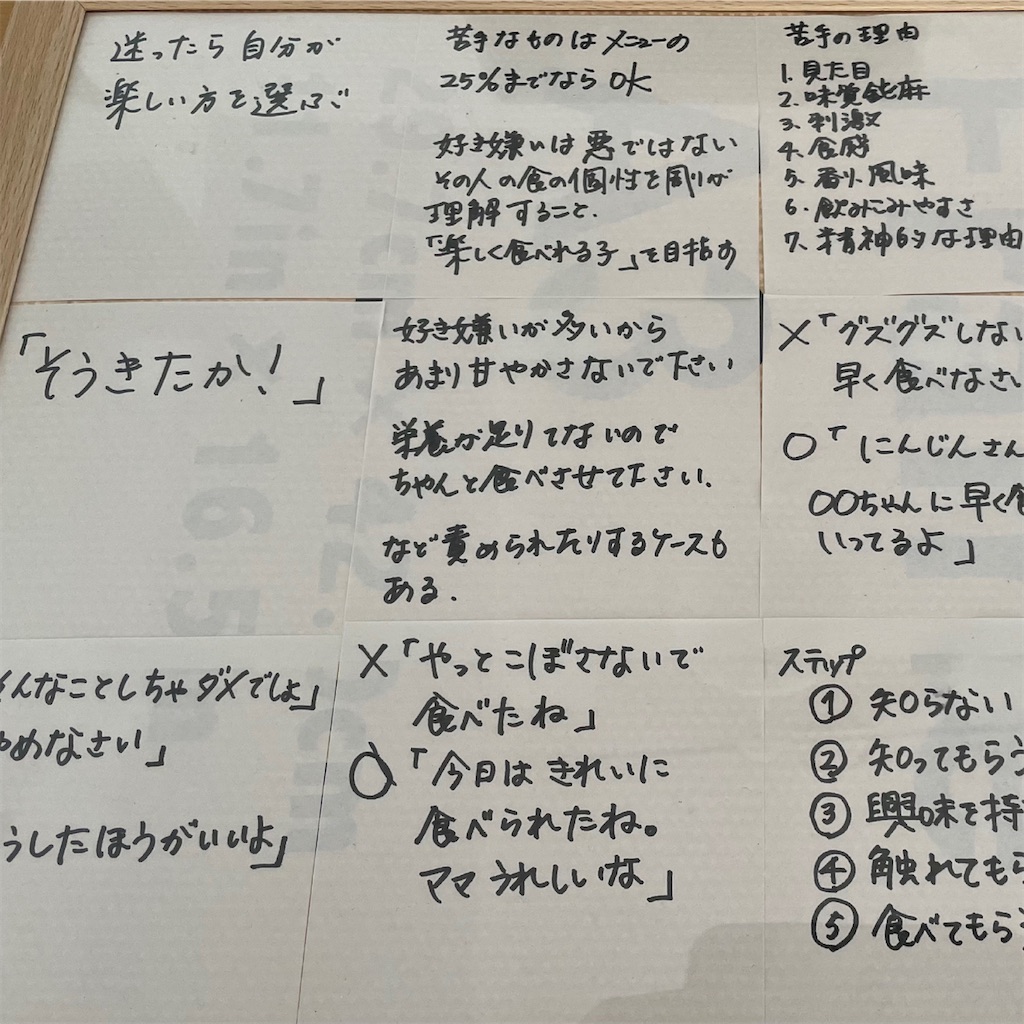 迷ったら自分が
楽しい方を選ぶ
苦手なものはメニューの
25%までならOK
好き嫌いは悪ではない
その人の食の個性を周りが
理解すること.
「楽しく食べれる子」を目指す
苦手の理由
1. 見た目
2. 味覚鈍麻
3. 刺激
4. 食感
5. 香り、風味
6. 飲みこみやすさ
7. 精神的な理由
「そうきたか!」
好き嫌いが多いから
あまり甘やかさないで下さい
栄養が足りてないので
ちゃんと食べさせて下さい.
など責められたりするケースも
ある.
×「グズグズしない
早く食べなさい
○「にんじんさん
○○ちゃんに早く食
いってるよ」
そんなことしちゃダメでしょ」
やめなさい」
うしたほうがいいよ」
×「やっとこぼさないで
食べたね」
○「今日はきれいに
食べられたね。
ママうれしいな」
ステップ
① 知らない
② 知ってもらう
③ 興味を持
④ 触れてもら
⑤ 食べてもらう